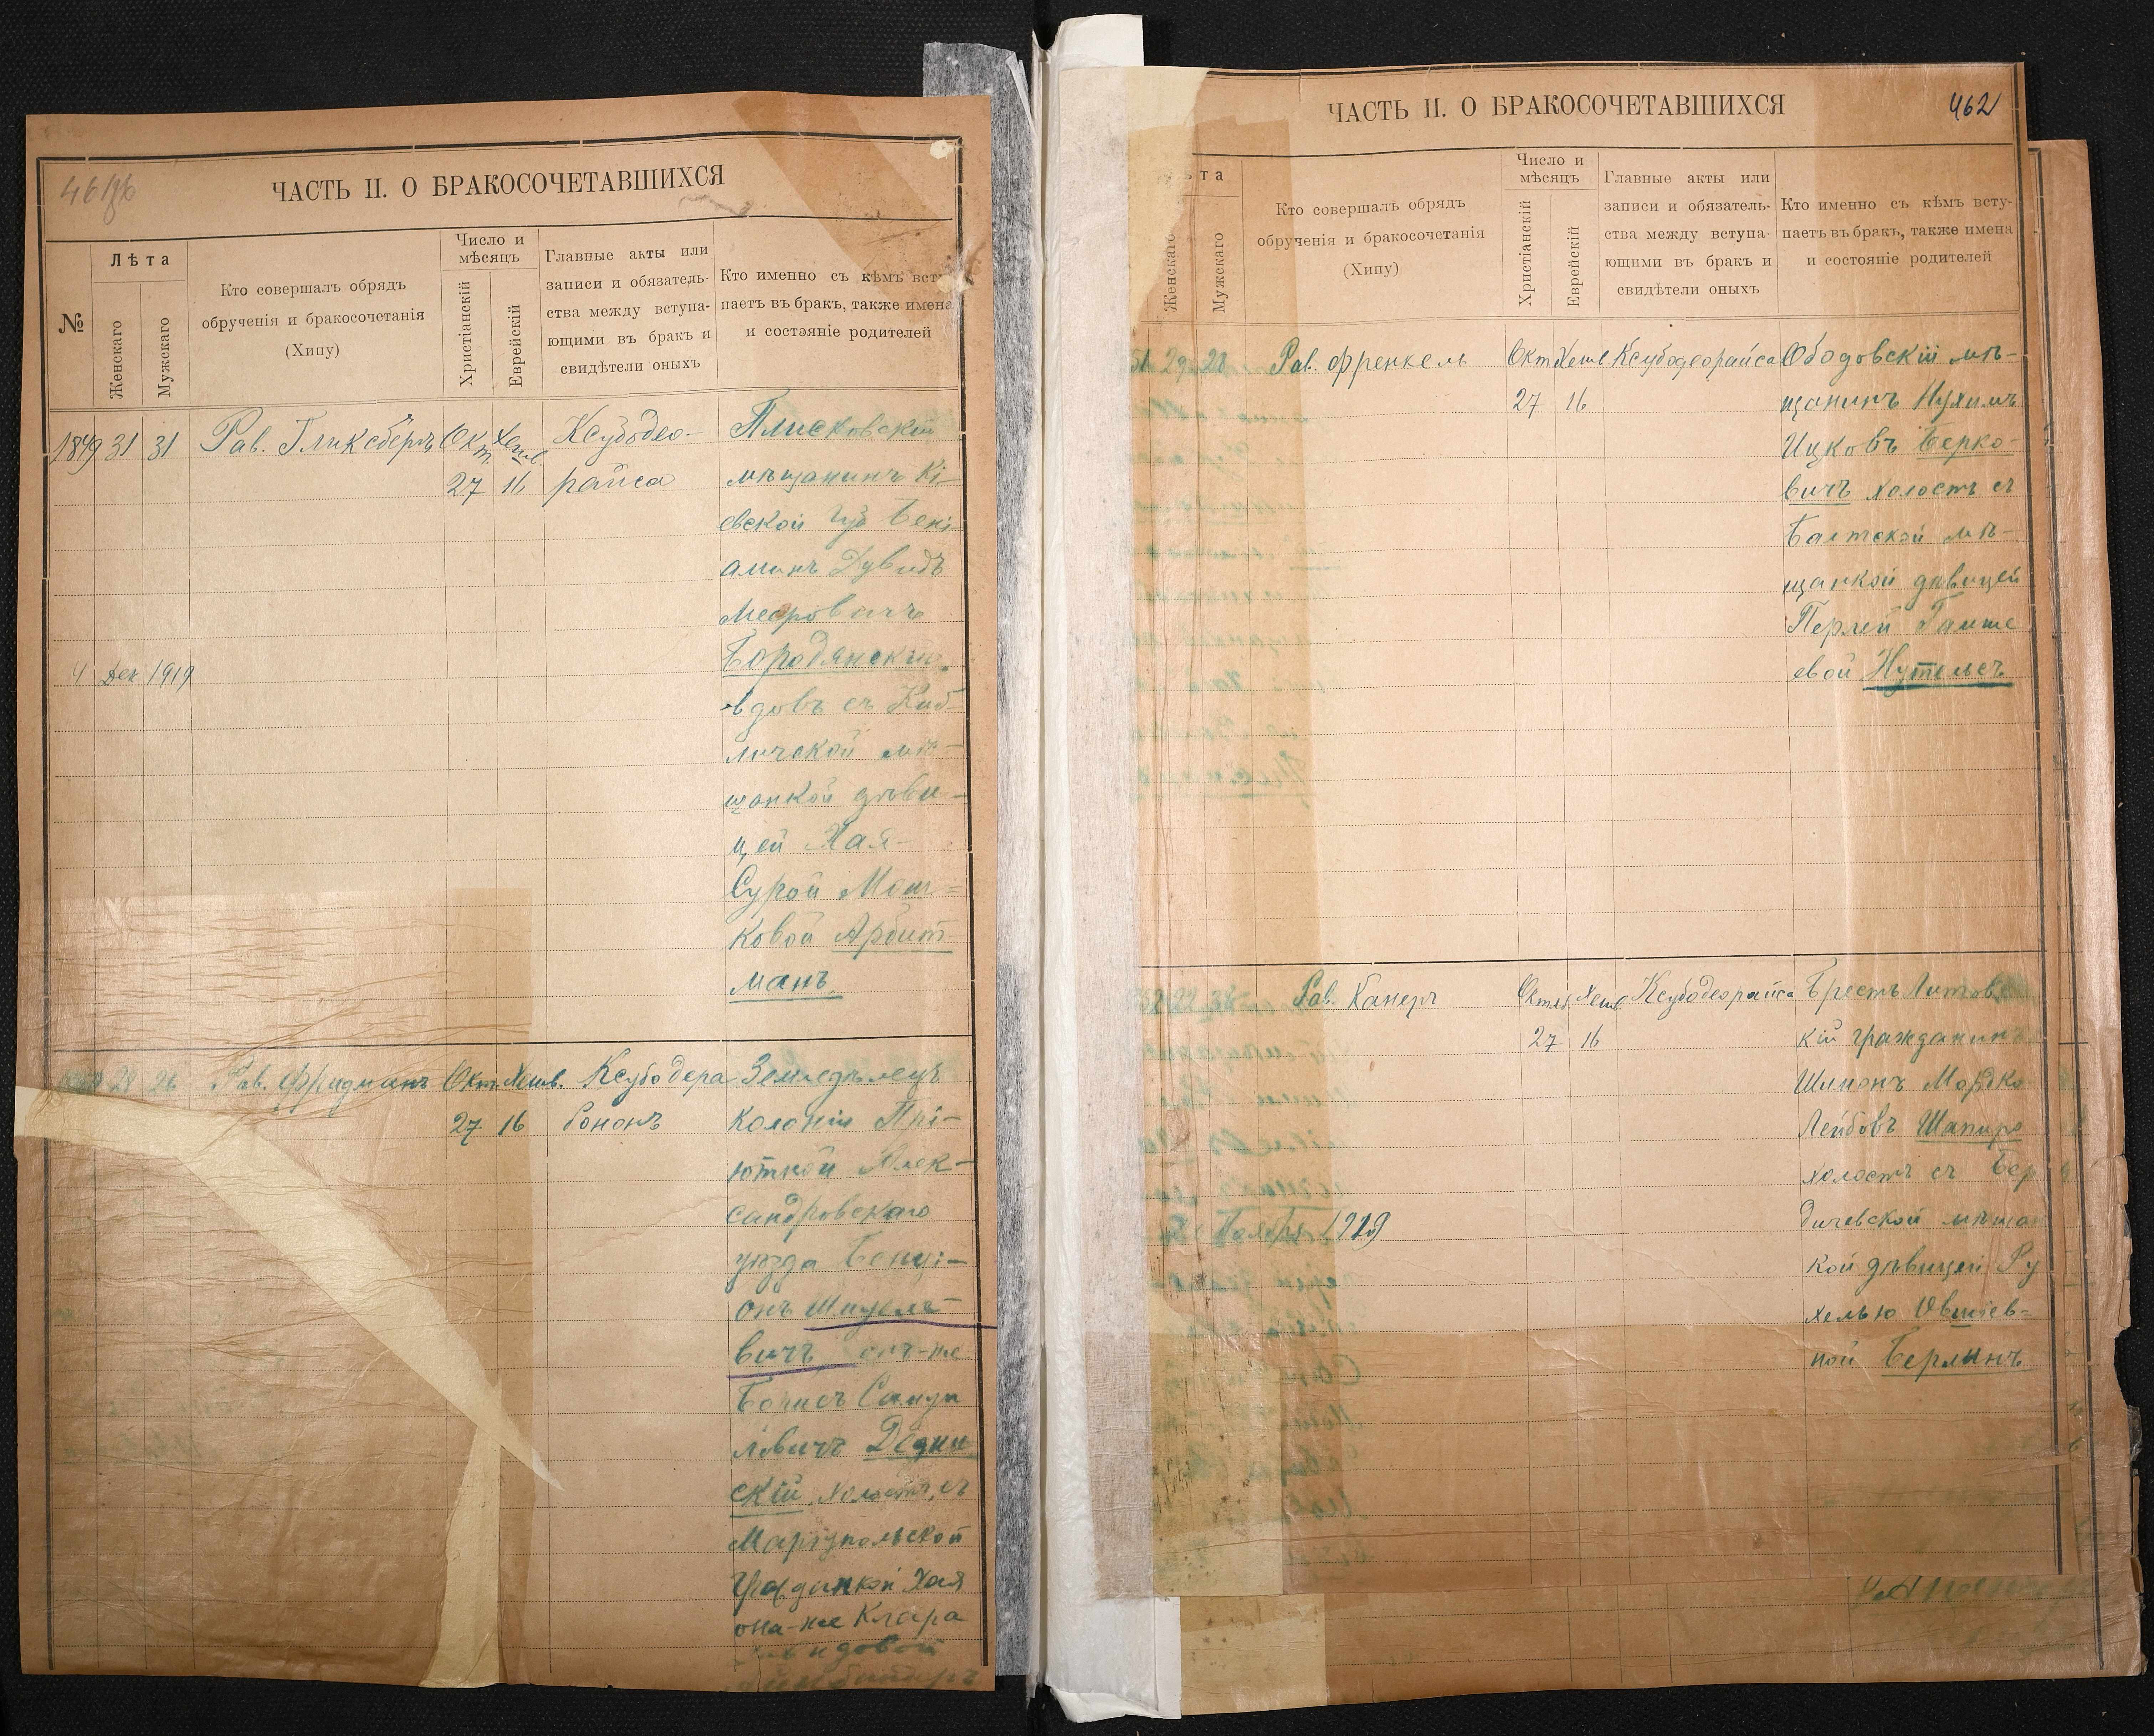 ЧАСТЬ II. О БРАКОСОЧЕТАВШИХСЯ
№
Лѣта
Женскаго
Мужскаго
Кто совершалъ обрядъ
обрученія и бракосочетанія
(Хипу)
Число и
мѣсяцъ
Христіанскій
Еврейскій
Главные акты или
записи и обязатель-
ства между вступа-
ющими въ бракъ и
свидѣтели оныхъ
Кто именно съ кѣмъ всту-
паетъ въ бракъ, также имена
и состояніе родителей
1849 31 31 Рав. Гликсбергъ Окт. Хешв. Ксубодео-
27 16 райса
Плисковскій
мѣщанинъ Кі-
евской губ Бені-
аминъ Дувидъ
Мееровичъ
Бородянскій
вдовъ съ Киб-
личской мѣ-
щанкой дѣви-
цей Хая-
Сурой Мош-
ковой Арбит-
манъ
4 Дек 1919
28 26 Рав. Фридманъ Окт. Хешв. Ксубодера
27 16 бононъ
Земледѣлецъ
колоніи Прі-
ютной Алек-
сандровскаго
уѣзда Бенці-
онъ Шмуеле-
вичъ онъ-же
Борисъ Самуи
ловичъ
скій холостъ, съ
Маріупольской
гражданкой Хая
она-же Клара
ЧАСТЬ II. О БРАКОСОЧЕТАВШИХСЯ
462
Женскаго
Мужскаго
Кто совершалъ обрядъ
обрученія и бракосочетанія
(Хипу)
Число и
мѣсяцъ
Христіанскій
Еврейскій
Главные акты или
записи и обязатель-
ства между вступа-
ющими въ бракъ и
свидѣтели оныхъ
Кто именно съ кѣмъ всту-
паетъ въ бракъ, также имена
и состояніе родителей
51 29 28 Рав. Френкель Окт. Хешв Ксубодеорайса
27 16
Ободовскій мѣ-
щанинъ Нухимъ
Ицковъ Берко-
вичъ холостъ съ
Балтской мѣ-
щанкой дѣвицей
Перлей
евой Нутельсъ
Рав. Канеръ Октяб Хешв Ксубодеорайса
27 16
Брестъ Литовс
кій гражданинъ
Шимонъ Мордко
Лейбовъ Шапиро
холостъ съ Бер
дичевской мѣщан
кой дѣвицей Ру
хелью Овшіев-
ной Берлинъ
Ноября 1919